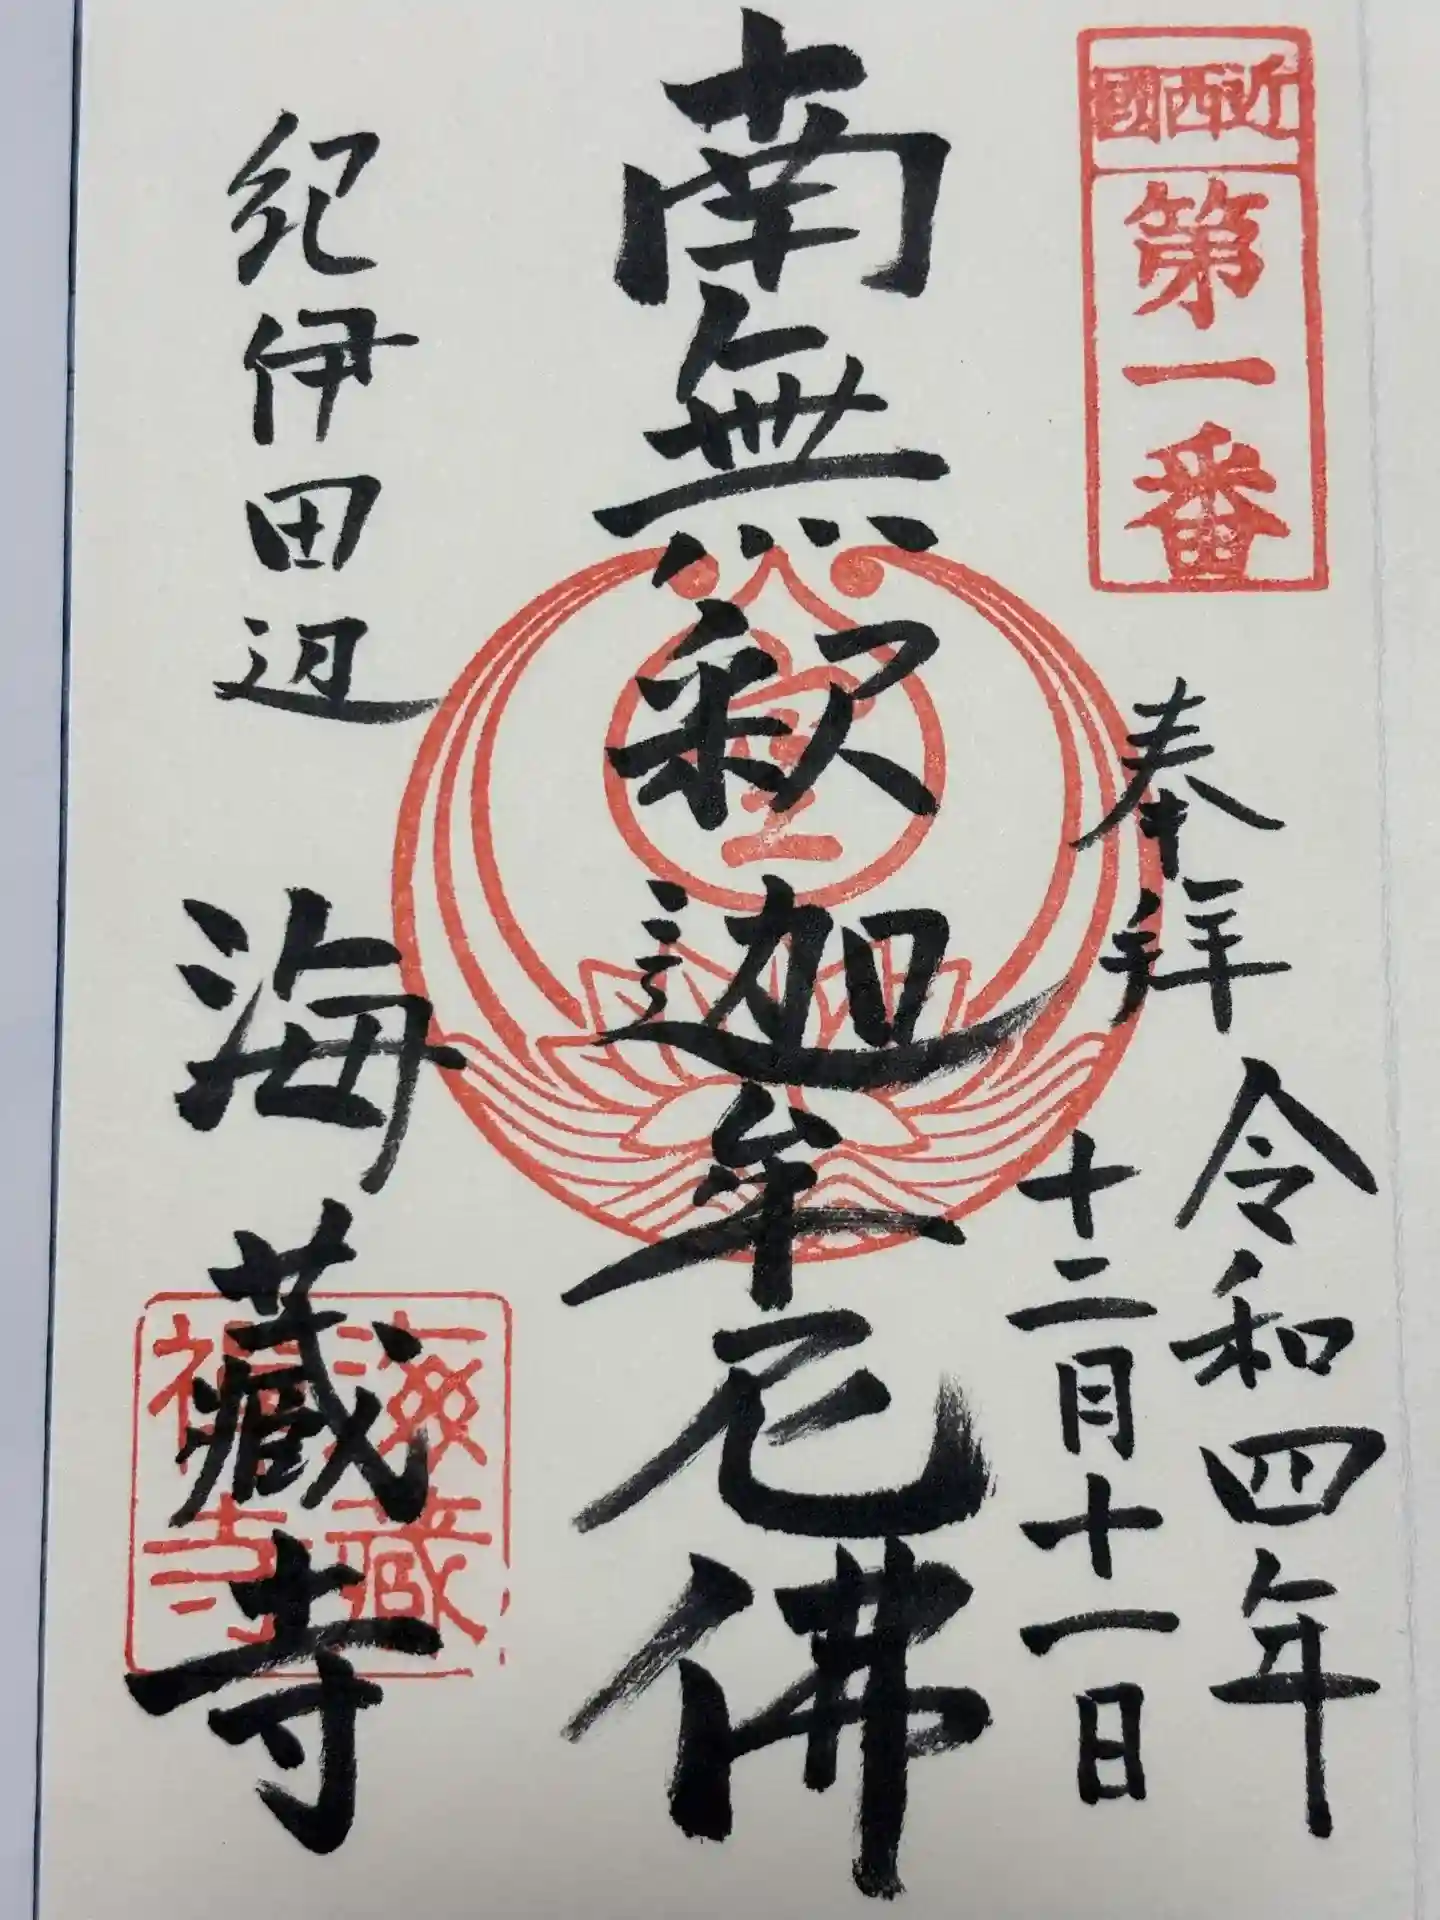 近西國
第一番
奉拝
令和四年
十二月十一日
南無釈迦牟尼佛
紀伊田辺
海蔵寺
海蔵
禅寺